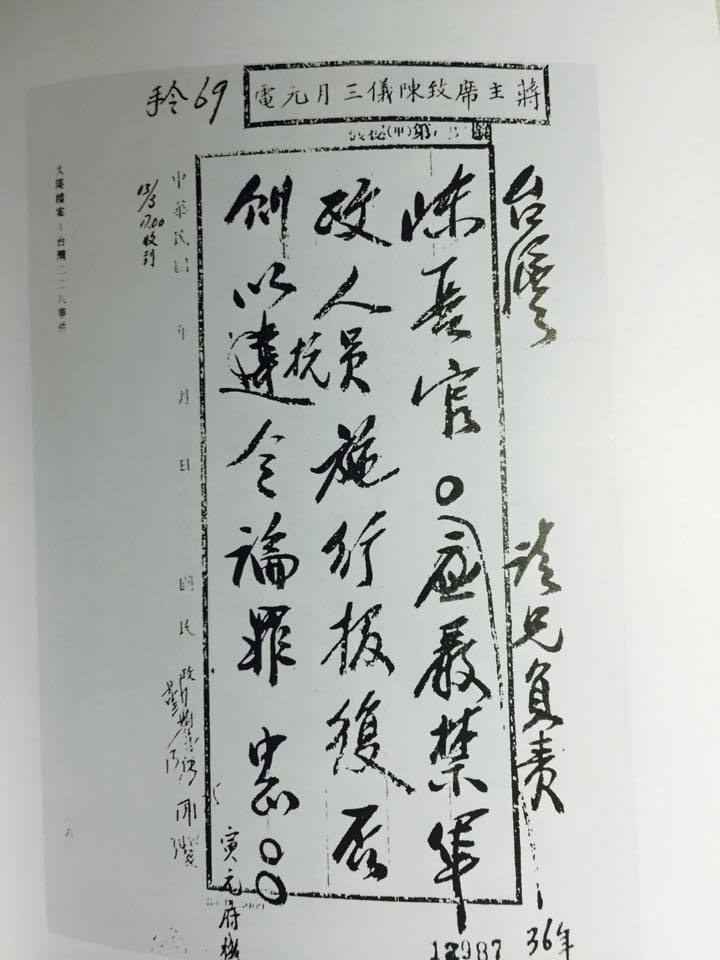 蔣主席致陳儀三月元電
手令69
台灣
陳長官。請兄負責應嚴禁軍
政人員施行报復否
則以違抗令論罪 中正。。
36年
12987
寅元府機
中華民國 年 月 日
國民政府
13/3 17.00 收到
大溪檔案－台灣二二八事件
六